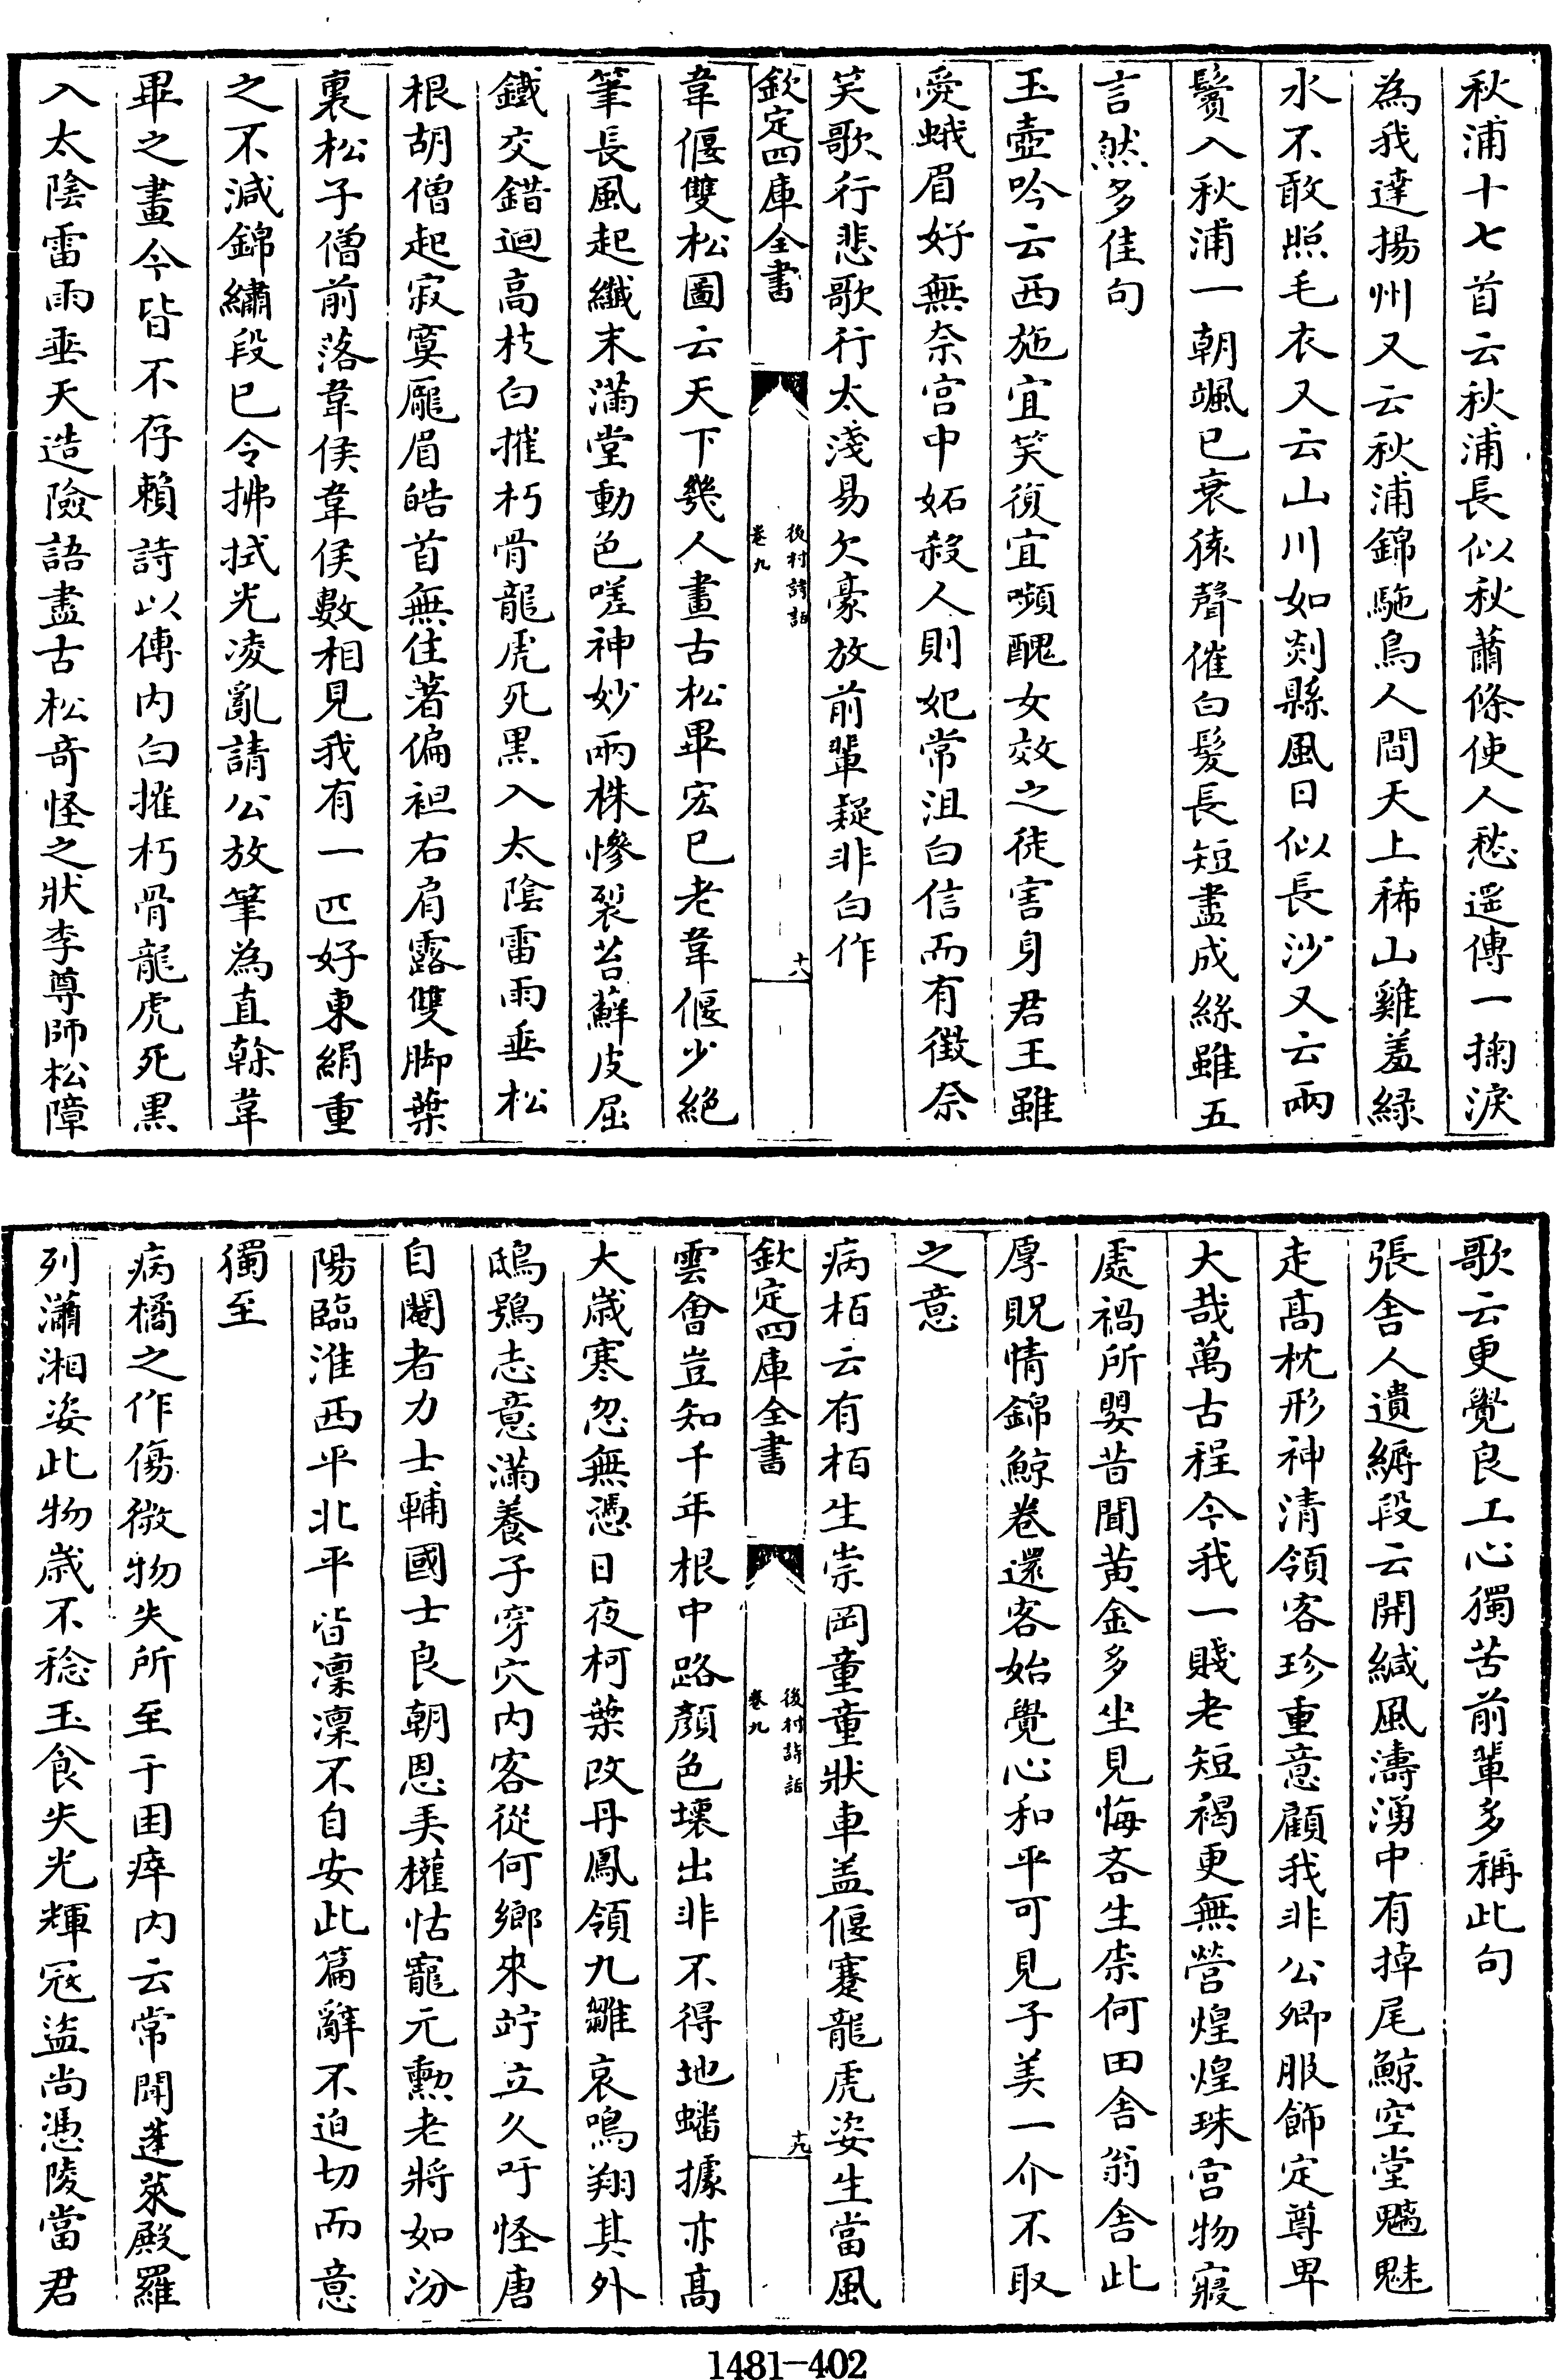 秋浦十七首云秋浦長似秋蕭條使人愁遥傳一掬淚
為我達揚州又云秋浦錦駞鳥人間天上稀山雞羞緑
水不敢照毛衣又云山川如剡縣風日似長沙又云兩
鬢入秋浦一朝颯已衰猿聲催白髮長短盡成絲雖五
言然多佳句
玉壺吟云西施宜笑復宜嚬醜女效之徒害身君王雖
愛蛾眉好無奈宫中妬殺人則妃常沮白信而有徴奈
笑歌行悲歌行太淺易欠豪放前輩疑非白作
欽定四庫全書
後村詩話
卷九
十八
韋偃雙松圖云天下幾人畫古松畢宏已老韋偃少絶
筆長風起纖末滿堂動色嗟神妙兩株慘裂苔蘚皮屈
鐵交錯迴髙枝白摧朽骨龍虎死黒入太陰雷雨垂松
根胡僧起寂寞龎眉皓首無住著偏袒右肩露雙脚葉
裏松子僧前落韋侯韋侯數相見我有一匹好東絹重
之不減錦繡段已令拂拭光凌亂請公放筆為直榦韋
畢之畫今皆不存賴詩以傳内白摧朽骨龍虎死黒
入太陰雷雨垂天造險語盡古松竒怪之狀李尊師松障
歌云更覺良工心獨苦前輩多稱此句
張舍人遺縟段云開緘風濤湧中有掉尾鯨空堂魑魅
走髙枕形神清領客珍重意顧我非公卿服飾定尊卑
大哉萬古程今我一賤老短褐更無營煌煌珠宫物寢
處禍所嬰昔聞黄金多坐見悔吝生柰何田舍翁舍此
厚貺情錦鯨卷還客始覺心和平可見子美一介不取
之意
病栢云有栢生崇岡童童狀車盖偃蹇龍虎姿生當風
欽定四庫全書
後村詩話
卷九
十九
雲會豈知千年根中路顔色壞出非不得地蟠據亦髙
大歳寒忽無憑日夜柯葉改丹鳳領九雛哀鳴翔其外
鴟鴞志意滿養子穿穴内客從何鄉來竚立久吁怪唐
自閹者力士輔國士良朝恩美權怙寵元勲老將如汾
陽臨淮西平北平皆凛凛不自安此篇辭不迫切而意
獨至
病橘之作傷微物失所至于困瘁内云常聞蓬萊殿羅
列瀟湘姿此物歳不稔玉食失光輝宼盜尚憑陵當君
1481-402